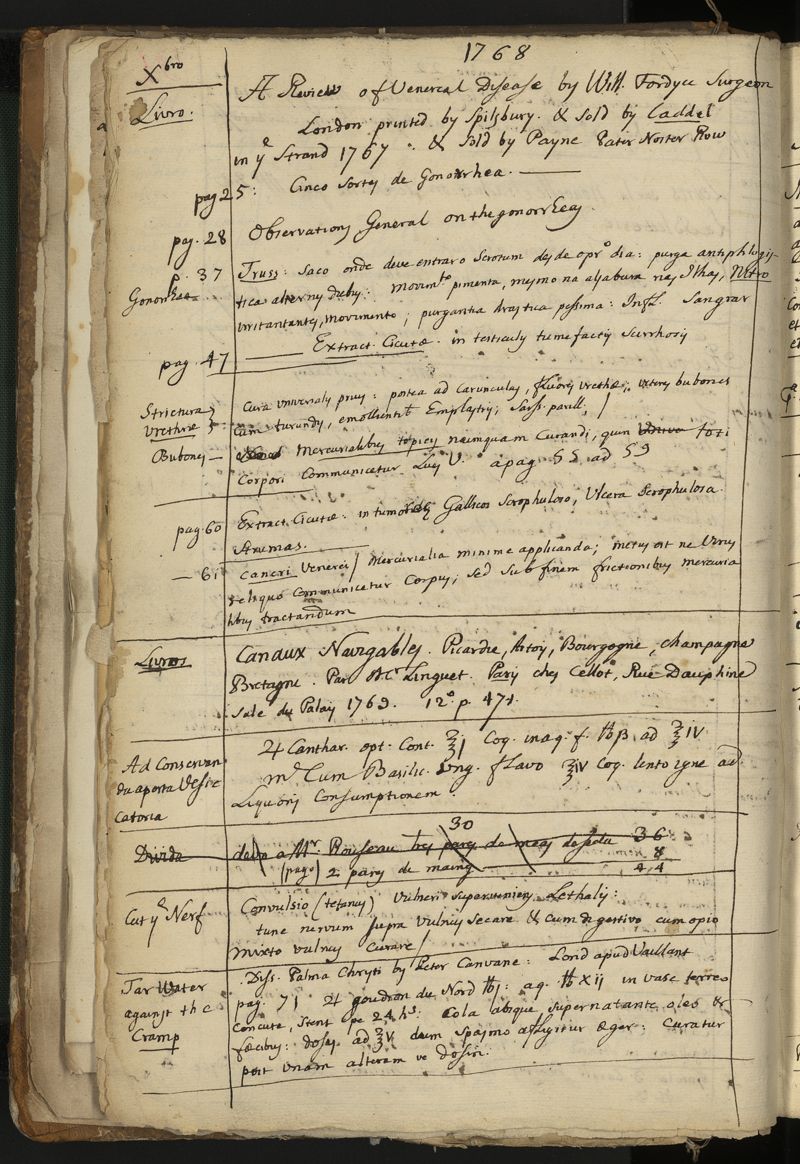 1768
Xbro
Livro.
A Review of Venereal Disease by Will. Fordyce Surgeon
London printed by Spilsbury. & Sold by Caddel
in ye Strand 1767. & Sold by Payne Pater Noster Row
pag 25: Cinco Sortes de Gonorrhea.
pag. 28 Observations General on the gonorrheas
p. 37 Truss: Saco onde deve entrar o Scrotum desde o pro dia: purga antiphlogis-
Gonorrhea tica alternis diebus: movimto pimenta, mesmo na algibura nas Ilhas, Nitro
irritantes, movimento; purgantia drastica pessima: Infl. Sangrar
pag. 47 Extract. Cicutæ. in testiculis tumefactis scirrhosis
Strictura Urethræ Cura universalis prius: postea ad carunculas, fluores urethræ; ulcera bubones
cum turundis, emollientib Emplastris; Sarss. parill;
Bubones Mercurialibus topicis nusquam Curandi, quin toti
Corpori Communicetur Lues V. a pag. 55 ad 59
pag 60 Extract. Cicutæ. in tumores Gallicos Scrophuloso, Ulcera Scrophulosa
Strumas.
61 Cancri Venerei / Mercurialia minime applicanda; metus est ne Virus
reliquo Communicetur Corpus; sed sub finem frictionibus mercuria
libus tractandum
Livros Canaux Navigables. Picardie, Artois, Bourgogne, Champagne
Bretagne. Par Mr Linguet. Paris ches Cellot, Rue Dauphine
Sale du Palais 1769. 12o p. 471.
Ad Conservan ♃ Canthar. opt. Cont. ℥j Coq. in aq. f. ℔ß ad ℥IV
du aporta Vesic m. Cum Basilic. Ung. flavo ℥iv Coq. lento igne ad
catoria Liquoris Consumptionem.
30
Divida devo a Mr. Roiseau bas pares de meas de seda 36
(pago) 2 pares de maing 8
44
Cut ye Nerf Convulsio (tetanus) Vulneri superveniens Lethalis:
tunc nervum supra vulnus secare & cum digestivo cum opio
mixto vulnus Curare /
Tar Water Diss. Palma Christi by Peter Canvane. Lond apud Vaillant
against the pag. 71 ♃ goudron du Nord ℔j: aq. ℔xij in vase terreo
Cramp concute, stent pe 24 hs. Cola absque supernatante oleo &
fæcibus: doses ad ℥v dum spasmo affigitur æger: Curatur
post unam alteram ve dosin.